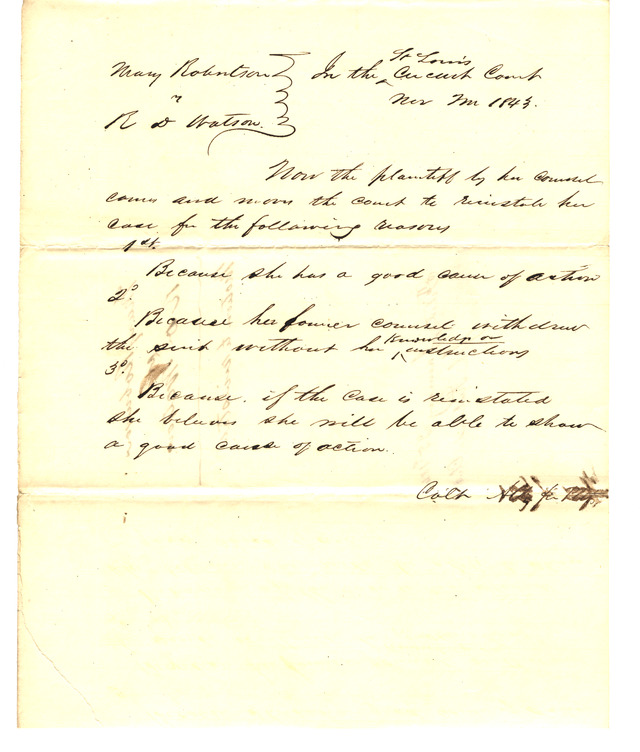 St Louis
Mary Robertson In the Circuit Court
v Nov Tm 1843.
R D Watson.
Now the plaintiff by her counsel
comes and moves the court to reinstate her
case for the following reasons
1st.
Because she has a good cause of action
2d.
Because her former counsel withdrew
knowledge or
the suit without her instructions
3d.
Because, if the case is reinstated
she believes she will be able to show
a good cause of action.